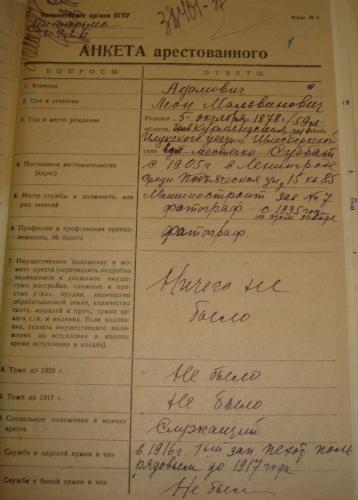 АНКЕТА арестованного
ВОПРОСЫ
ОТВЕТЫ
1. Фамилия
Адамович
2. Имя и отчество
Леон Мальвинович
3. Год и место рождения
Родился 5 октября 1878 г/59 л
область Курляндская
Суббат
4. Постоянное местожительство
(адрес)
с 1905 г. в Ленинграде
Средн Подьяческая ул, 15 кв 85
5. Место службы и должность или
род занятий
Машиностроит зав № 7
фотограф - с 1935 года
6. Профессия и профсоюзная принад-
лежность, № билета
фотограф.
7. Имущественное положение в мо-
мент ареста (перечислить подробно
недвижимое и движимое имуще-
ство: постройки, сложные и про-
стые с-хоз. орудия, количество
обрабатываемой земли, количество
скота, лошадей и проч., сумма
налога с-х. и индивид. Если колхоз-
ник, указать имущественное поло-
жение до вступления в колхоз,
время вступления в колхоз).
Ничего не
было
8. Тоже до 1929 г.
Не было
9. Тоже до 1917 г.
Не было
Социальное положение в момент
ареста
Служащий
Служба в царской армии и чин
в 1916 г. 1ый зап пехот. полк
рядовым до 1917 года
Служба в белой армии и чин
Не был